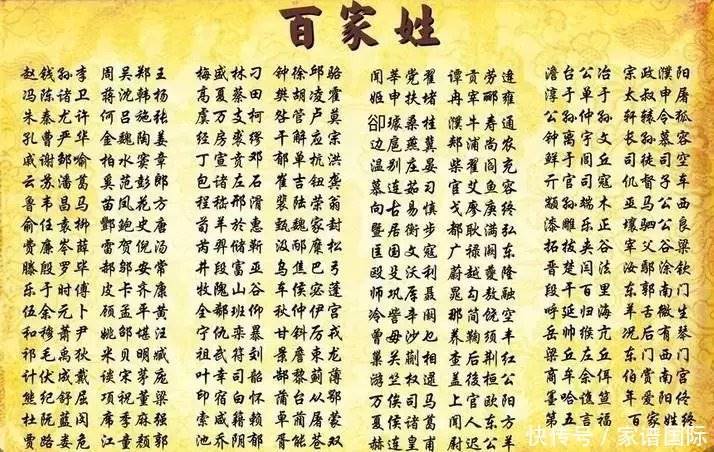 百家姓
赵钱孙李 周吴郑王
冯陈诸卫 蒋沈韩杨
朱秦尤许 何吕施张
孔曹严华 金魏陶姜
戚谢邹喻 柏水窦章
云苏潘葛 奚范彭郎
鲁韦昌马 苗凤花方
俞任袁柳 酆鲍史唐
费廉岑薛 雷贺倪汤
滕殷罗毕 郝邬安常
乐于时傅 皮卡齐康
伍余元卜 顾孟平黄
和穆萧尹 姚邵堪汪
祁毛禹狄 米贝明臧
计伏成戴 谈宋茅庞
熊纪舒屈 项祝董梁
杜阮蓝闵 席季麻强
贾路娄危 江童颜郭
梅盛林刁 钟徐邱骆
高夏蔡田 樊胡凌霍
虞万支柯 昝管卢莫
经房裘缪 干解应宗
丁宣贲邓 郁单杭洪
包诸左石 崔吉钮龚
程嵇邢滑 裴陆荣翁
荀羊於惠 甄魏家封
芮羿储靳 汲邴糜松
井段富巫 乌焦巴弓
牧隗山谷 车侯宓蓬
全郗班仰 秋仲伊宫
宁仇栾暴 甘钭厉戎
祖武符刘 景詹束龙
叶幸司韶 郜黎蓟薄
印宿白怀 蒲邰从鄂
索咸籍赖 卓蔺屠蒙
池乔阴郁 胥能苍双
闻莘党翟 谭贡劳逄
姬申扶堵 冉宰郦雍
卻璩桑桂 濮牛寿通
边扈燕冀 郏浦尚农
温别庄晏 柴瞿阎充
慕连茹习 宦艾鱼容
向古易慎 戈廖庾终
暨居衡步 都耿满弘
匡国文寇 广禄阙东
殴殳沃利 蔚越夔隆
师巩厍聂 晁勾敖融
冷訾辛阚 那简饶空
曾毋沙乜 养鞠须丰
巢关蒯相 查后荆红
游竺权逯 盖益桓公
万俟司马 上官欧阳
夏侯诸葛 闻人东方
赫连皇甫 尉迟公羊
澹台公冶 宗政濮阳
淳于单于 太叔申屠
公孙仲孙 轩辕令狐
钟离宇文 长孙慕容
鲜于闾丘 司徒司空
亓官司寇 仉督子车
颛孙端木 巫马公西
漆雕乐正 壤驷公良
拓拔夹谷 宰父谷梁
晋楚闫法 汝鄢涂钦
段干百里 东郭南门
呼延归海 羊舌微生
岳帅缑亢 况后有琴
梁丘左丘 东门西门
商牟佘佴 伯赏南宫
墨哈谯笪 年爱阳佟
第五言福 百家姓终
快传号/家谱国际